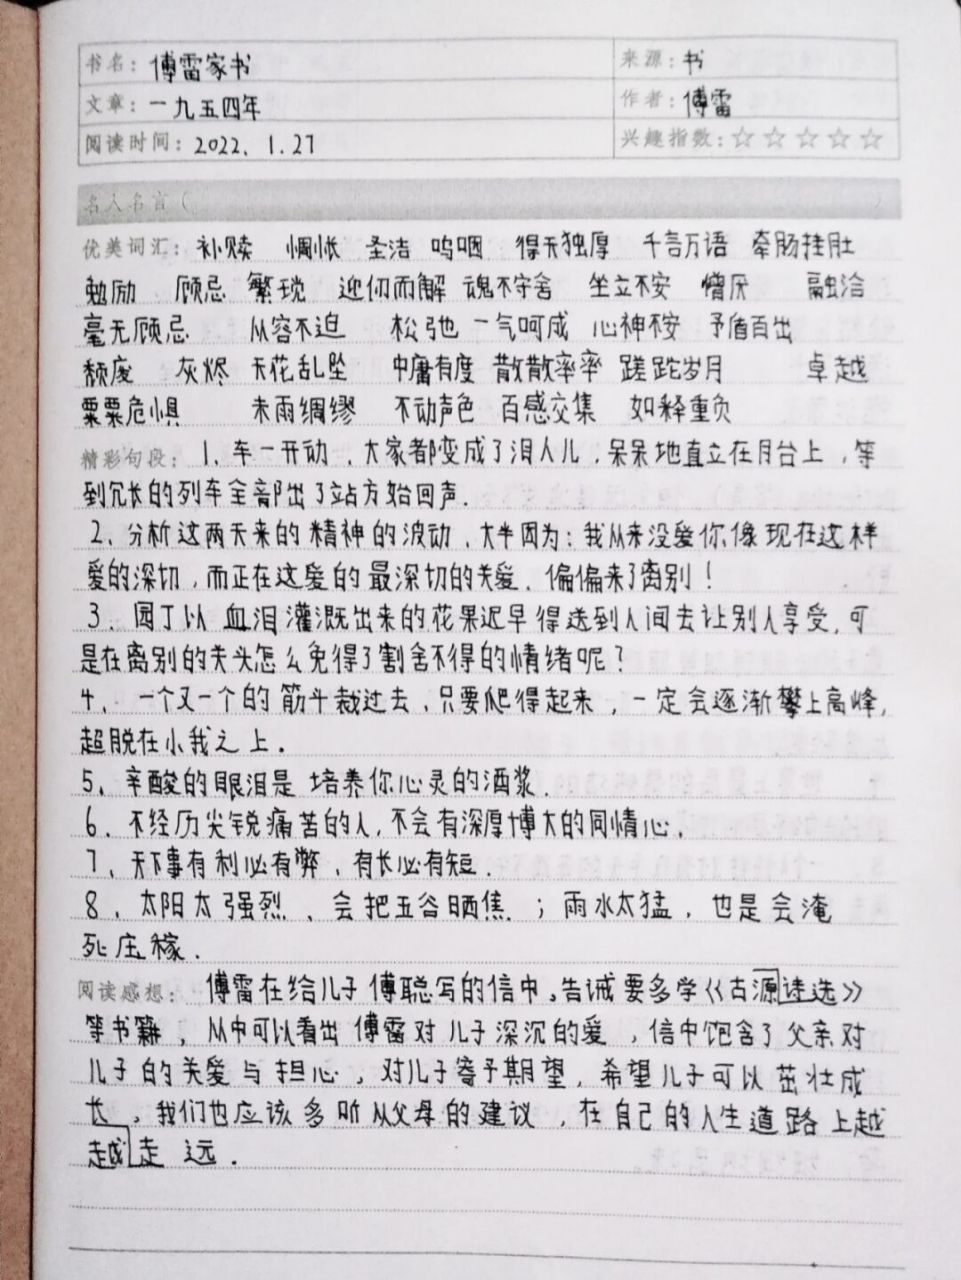 书名：傅雷家书 来源：书
文章：一九五四年 作者：傅雷
阅读时间：2022、1.27 兴趣指数：☆☆☆☆☆
名人名言（ ）
优美词汇：补赎 惆怅 圣洁 呜咽 得天独厚 千言万语 牵肠挂肚
勉励 顾忌 繁琐 迎仞而解 魂不守舍 坐立不安 憎厌 融洽
毫无顾忌 从容不迫 松弛 一气呵成 心神不安 矛盾百出
颓废 灰烬 天花乱坠 中庸有度 散散率率 蹉跎岁月 卓越
栗栗危惧 未雨绸缪 不动声色 百感交集 如释重负
精彩句段：1、车一开动，大家都变成了泪人儿，呆呆地直立在月台上，等
到冗长的列车全部出了站方始回声.
2、分析这两天来的精神的波动，大半因为：我从来没爱你像现在这样
爱的深切，而正在这爱的最深切的关爱，偏偏来了离别！
3、园丁以血泪灌溉出来的花果迟早得送到人间去让别人享受，可
是在离别的关头怎么免得了割舍不得的情绪呢？
4、一个又一个的筋斗栽过去，只要爬得起来，一定会逐渐攀上高峰，
超脱在小我之上.
5、辛酸的眼泪是培养你心灵的酒浆.
6、不经历尖锐痛苦的人，不会有深厚博大的同情心.
7、天下事有利必有弊，有长必有短.
8、太阳太强烈、会把五谷晒焦；雨水太猛，也是会淹
死庄稼.
阅读感想：傅雷在给儿子傅聪写的信中。告诫要多学《古源诗选》
等书籍，从中可以看出傅雷对儿子深沉的爱，信中饱含了父亲对
儿子的关爱与担心，对儿子寄予期望，希望儿子可以茁壮成
长，我们也应该多听从父母的建议，在自己的人生道路上越
越走远.